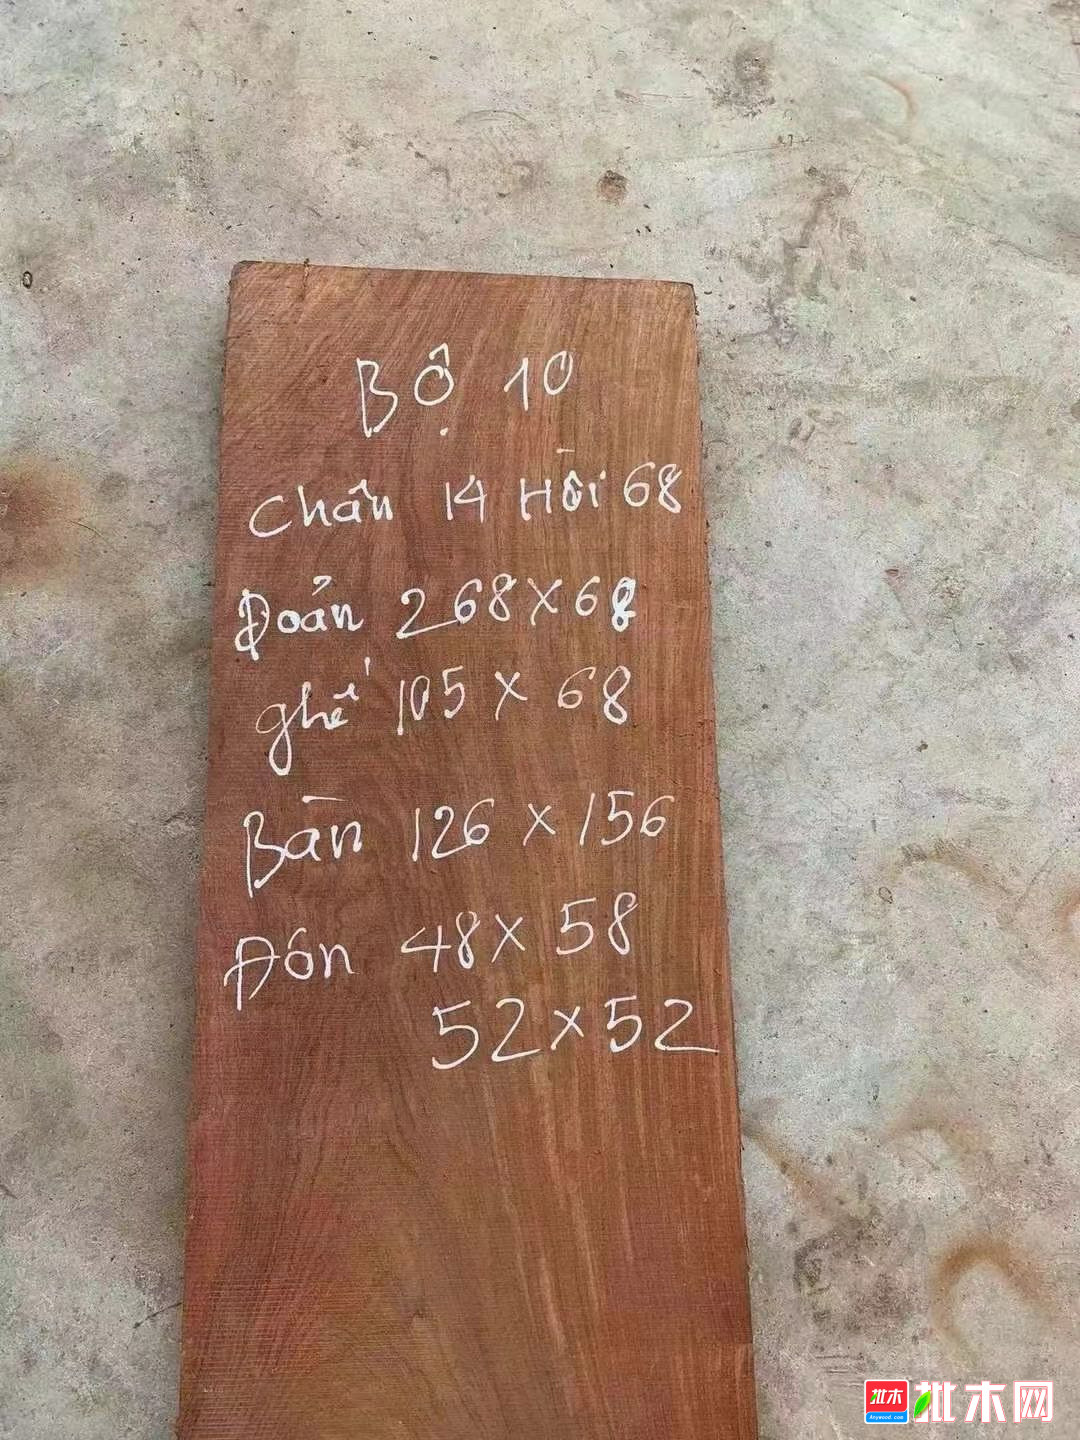 Bộ 10
Chân 14 Hồi 68
Đoản 268 x 68
ghế 105 x 68
Bàn 126 x 156
Đón 48 x 58
52 x 52
批木
Anywood.com
批木网